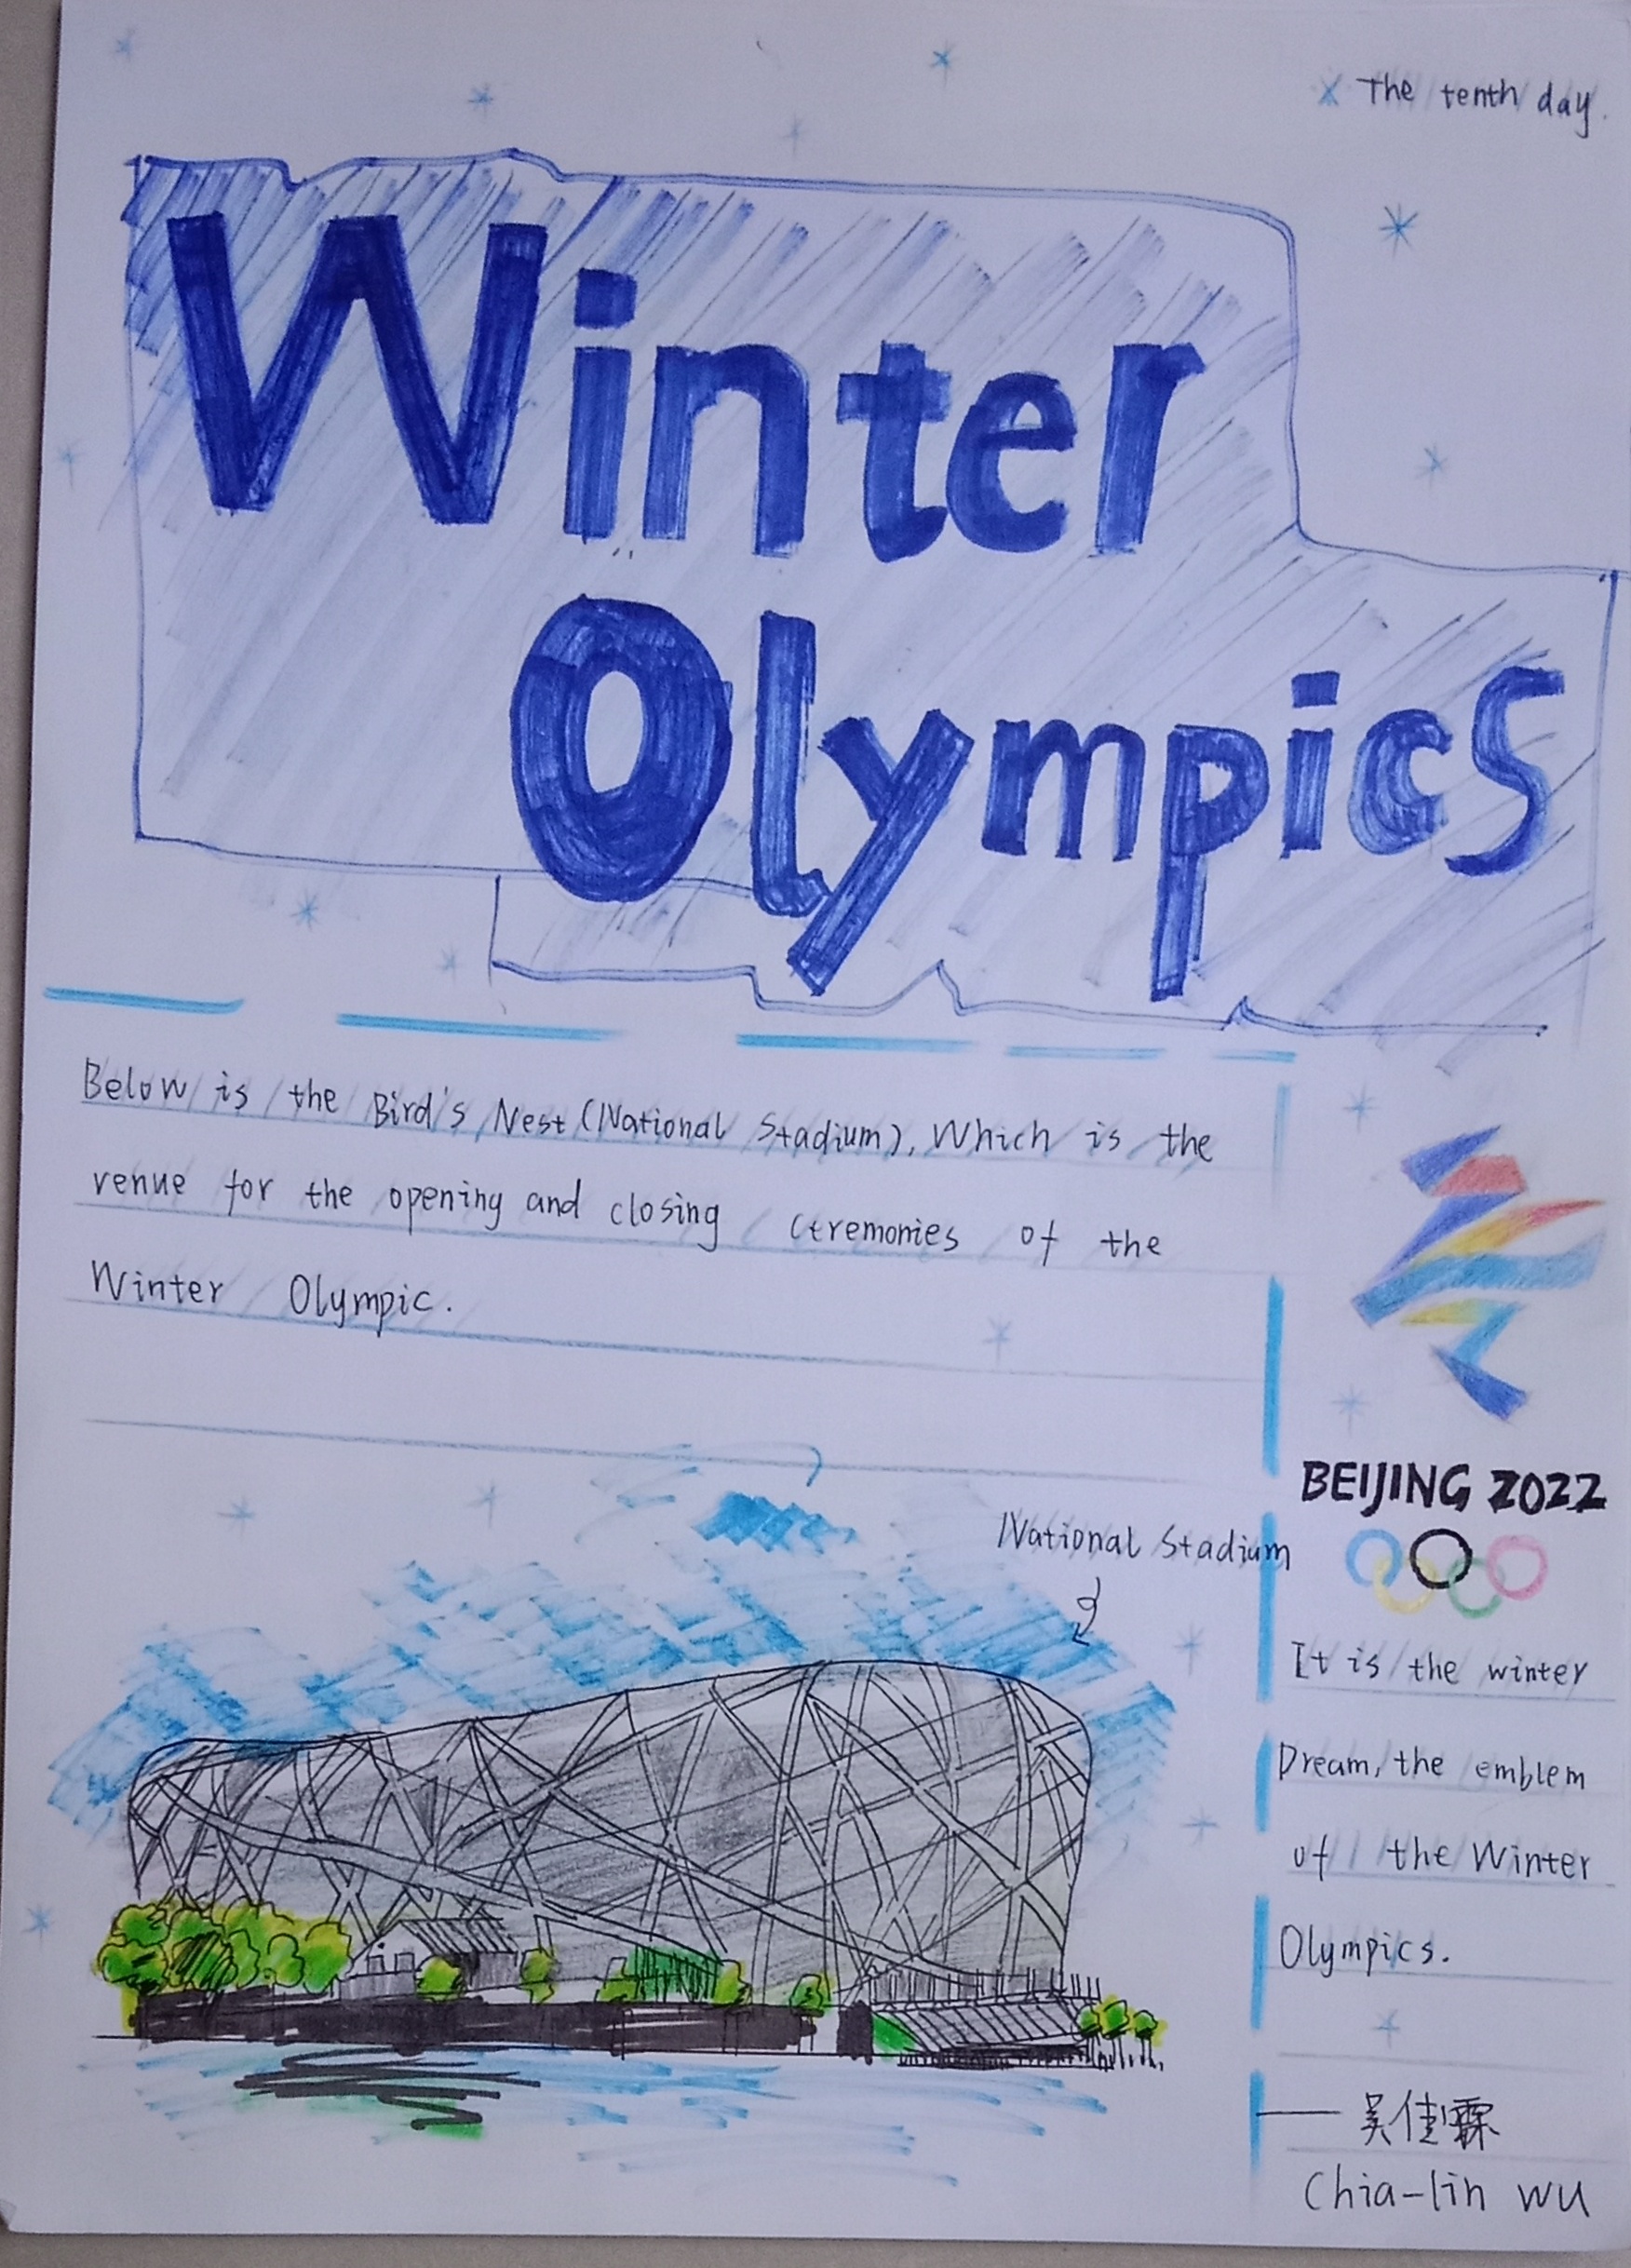 The tenth day.
Winter
Olympics
Below is the Bird's Nest (National Stadium), Which is the
venue for the opening and closing ceremonies of the
Winter Olympic.
BEIJING 2022
National Stadium
It is the winter
Dream, the emblem
of the Winter
Olympics.
吴佳霖
Chia-lin wu